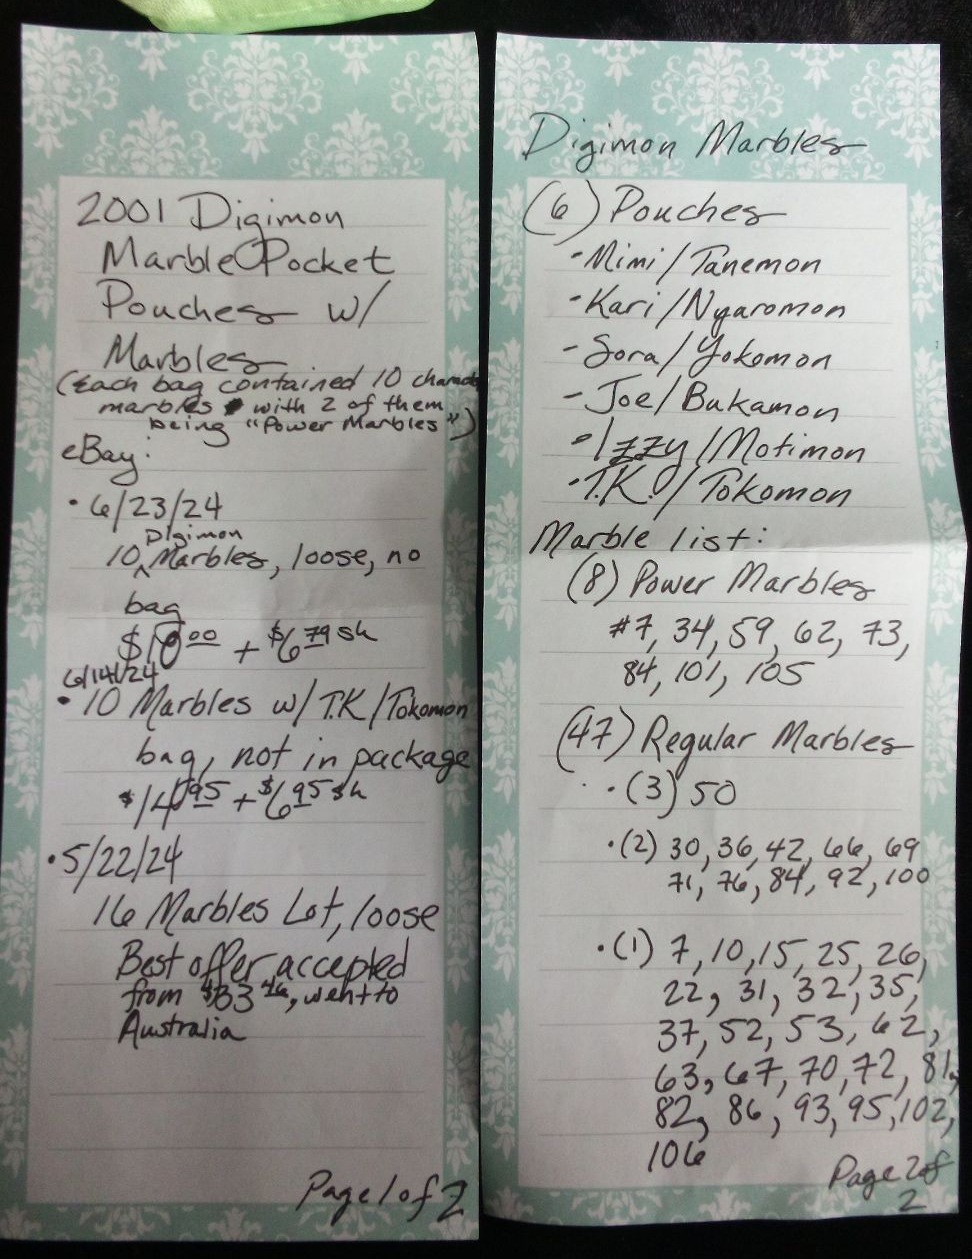 2001 Digimon
Marble Pocket
Pouches w/
Marbles
(Each bag contained 10 charact
marbles with 2 of them
being "Power Marbles")
eBay:
• 6/23/24
Digimon
10 ^ Marbles, loose, no
bag
$18.00 + $6.79 sh
6/14/24
• 10 Marbles w/ T.K/Tokomon
bag, not in package
$14.95 + $6.95 sh
• 5/22/24
16 Marbles Lot, loose
Best offer accepted
from $33.46, went to
Australia
Page 1 of 2
Digimon Marbles
(6) Pouches
- Mimi/Tanemon
- Kari/Nyaromon
- Sora/Yokomon
- Joe/Bukamon
- Izzy/Motimon
- T.K./Tokomon
Marble list:
(8) Power Marbles
#7, 34, 59, 62, 73,
84, 101, 105
(47) Regular Marbles
• (3) 50
• (2) 30, 36, 42, 66, 69
71, 76, 84, 92, 100
• (1) 7, 10, 15, 25, 26,
22, 31, 32, 35,
37, 52, 53, 62,
63, 67, 70, 72, 81,
82, 86, 93, 95, 102,
106
Page 2 of
2